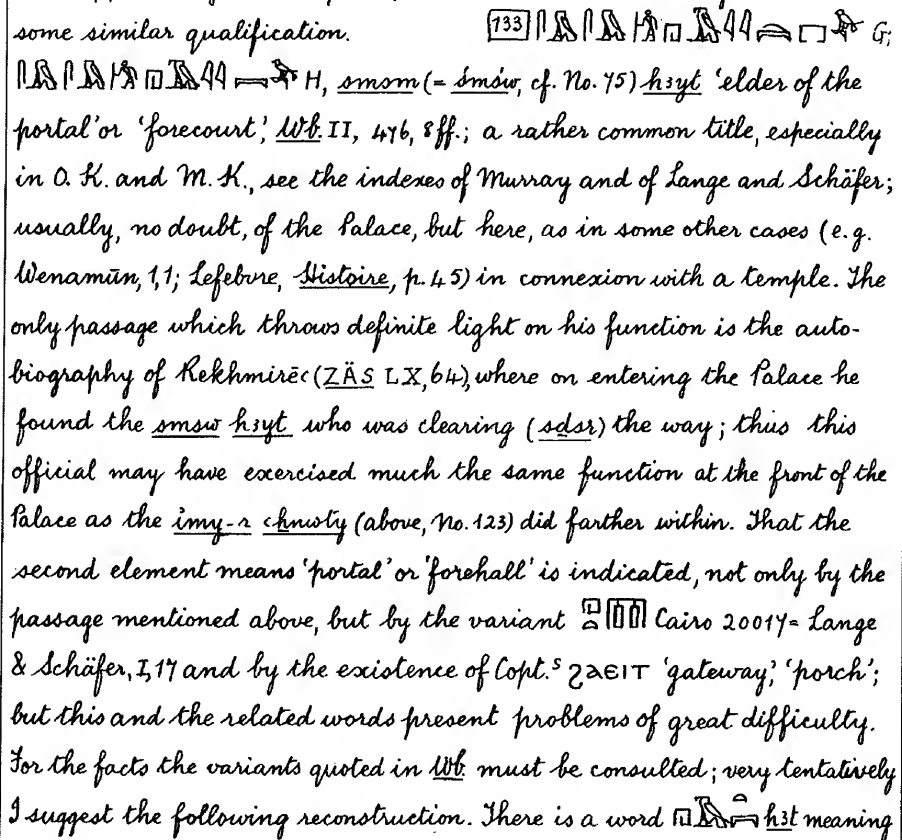 some similar qualification. 133 G;
H, smsm (= śmśw, cf. No. 75) hꜣyt 'elder of the
portal' or 'forecourt', Wb. II, 476, 8ff.; a rather common title, especially
in O. K. and M. K., see the indexes of Murray and of Lange and Schäfer;
usually, no doubt, of the Palace, but here, as in some other cases (e.g.
Wenamūn, 1,1; Lefebvre, Histoire, p. 45) in connexion with a temple. The
only passage which throws definite light on his function is the auto-
biography of Rekhmirēꜥ (ZÄS LX, 64), where on entering the Palace he
found the smsw hꜣyt who was clearing (sḏsr) the way; thus this
official may have exercised much the same function at the front of the
Palace as the imy-r ꜥhnwty (above, No. 123) did farther within. That the
second element means 'portal' or 'forehall' is indicated, not only by the
passage mentioned above, but by the variant Cairo 20017 = Lange
& Schäfer, I, 17 and by the existence of Copt.ˢ ϩⲁⲉⲓⲧ 'gateway', 'porch';
but this and the related words present problems of great difficulty.
For the facts the variants quoted in Wb. must be consulted; very tentatively
I suggest the following reconstruction. There is a word hꜣt meaning